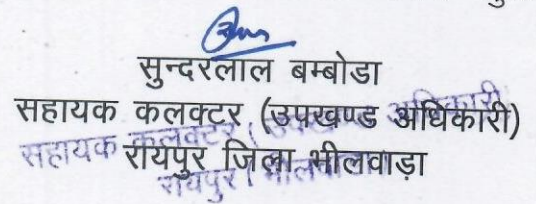 सुन्दरलाल बम्बोडा
सहायक कलक्टर (उपखण्ड अधिकारी)
रायपुर जिला भीलवाड़ा
सहायक कलक्टर, उपखण्ड अधिकारी
रायपुर ( भीलवाड़ा